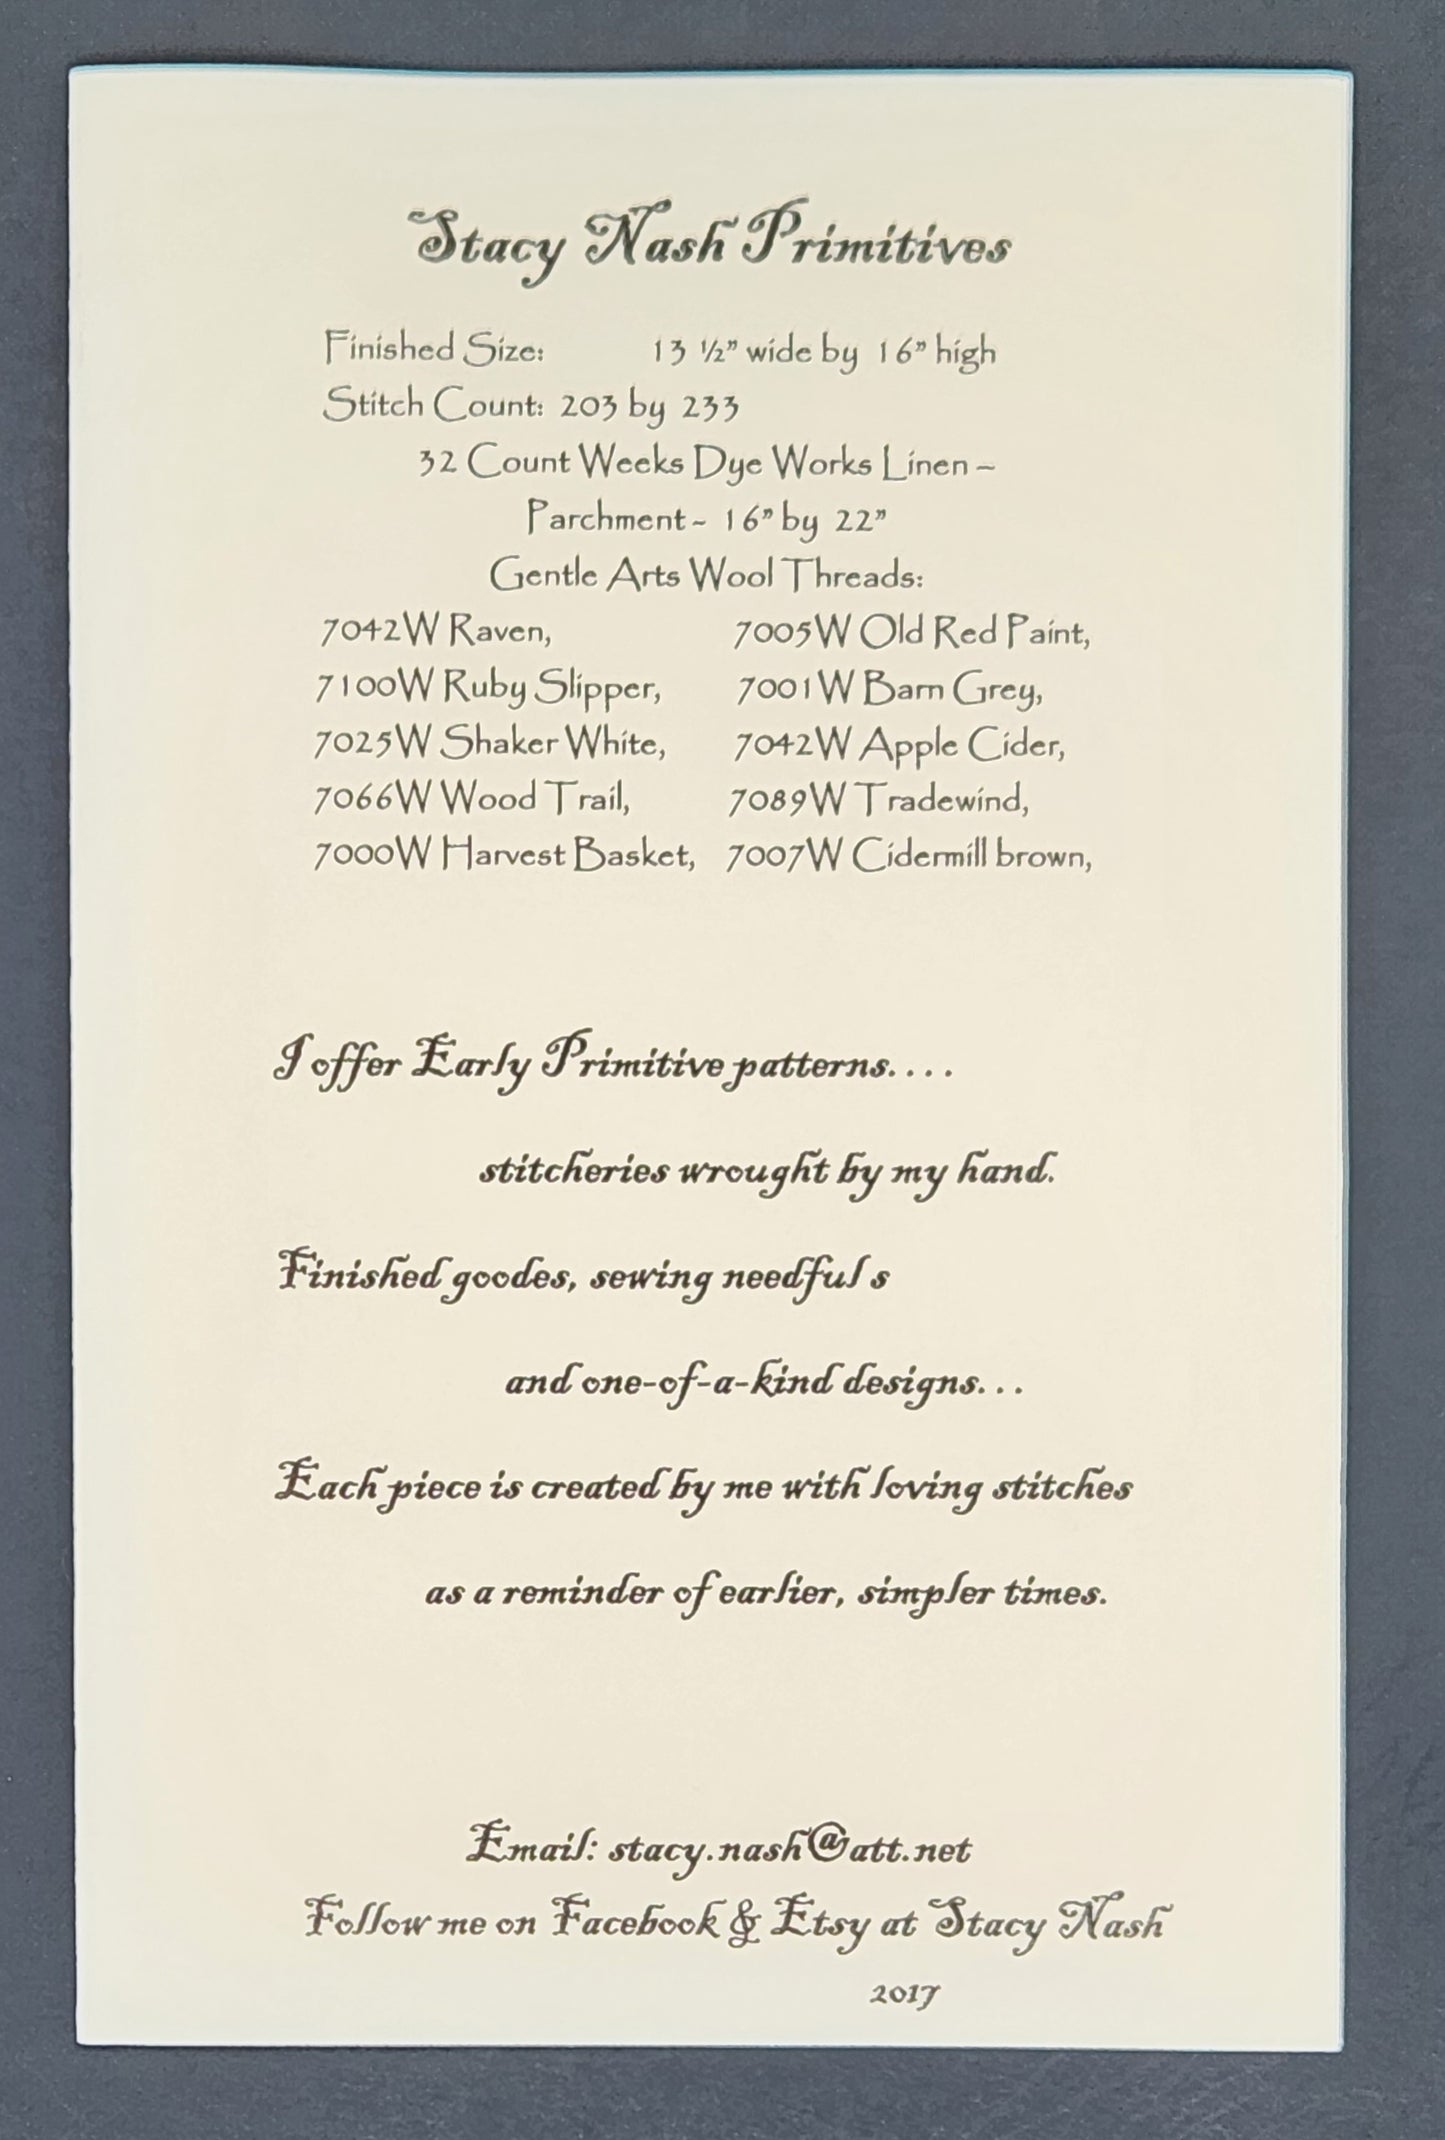 Stacy Nash Primitives
Finished Size: 13 ½” wide by 16” high
Stitch Count: 203 by 233
32 Count Weeks Dye Works Linen ~
Parchment ~ 16” by 22”
Gentle Arts Wool Threads:
7042W Raven, 7005W Old Red Paint,
7100W Ruby Slipper, 7001W Barn Grey,
7025W Shaker White, 7042W Apple Cider,
7066W Wood Trail, 7089W Tradewind,
7000W Harvest Basket, 7007W Cidermill brown,
I offer Early Primitive patterns. . . .
stitcheries wrought by my hand.
Finished goodes, sewing needful s
and one-of-a-kind designs. . .
Each piece is created by me with loving stitches
as a reminder of earlier, simpler times.
Email: stacy.nash@att.net
Follow me on Facebook & Etsy at Stacy Nash
2017